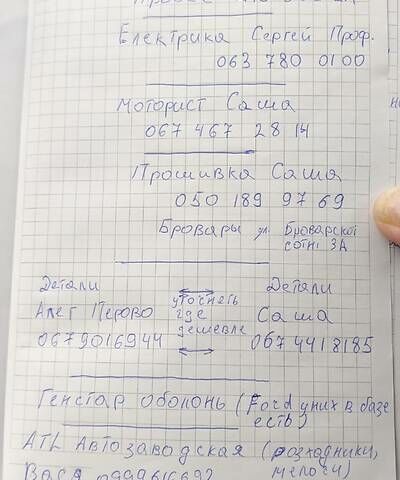 Електрика Сергей Проф.
063 780 0100
Моторист Саша
067 467 28 14
Прошивка Саша
050 189 97 69
Бровары ул Броварской
сотні 3А
Детали Детали
Алег Перово уточнеть Саша
где
дешевле
0679016944 0674418185
Генстар оболонь (Ford у них в базе
есть)
ATL Автозаводская (розходники,
мелочи)
Вася 0999616692